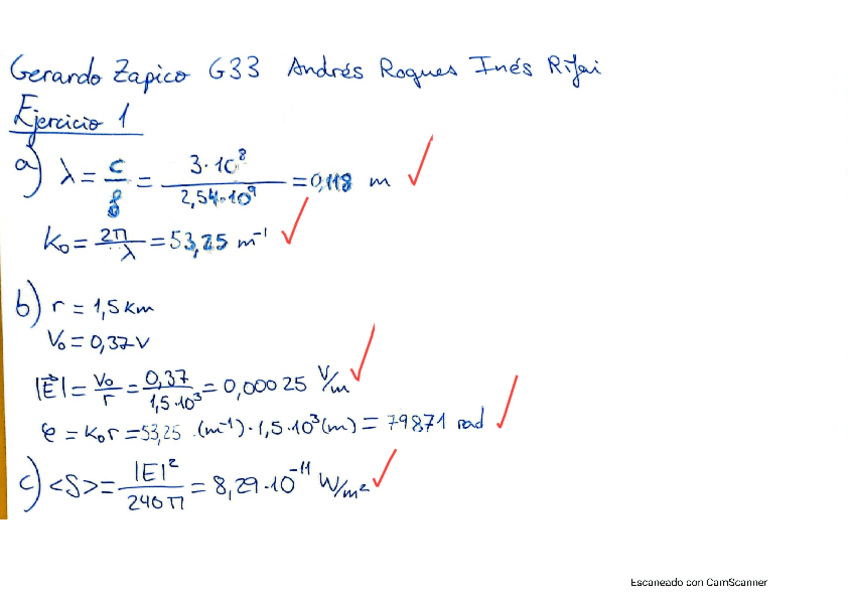 Gerardo Zapico G33 Andrés Roques Inés Rifai
Ejercicio 1
a) λ = c/f = 3·10⁸/2,54·10⁹ = 0,118 m
k₀ = 2π/λ = 53,25 m⁻¹
b) r = 1,5 km
V₀ = 0,37 V
|E⃗| = V₀/r = 0,37/1,5·10³ = 0,00025 V/m
φ = k₀r = 53,25 (m⁻¹)·1,5·10³(m) = 79871 rad
c) <S> = |E|²/240π = 8,29·10⁻¹¹ W/m²
Escaneado con CamScanner